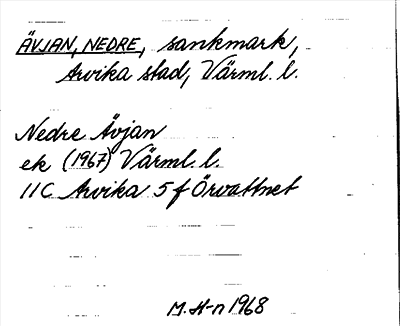 ÄVJAN, NEDRE, sankmark,
Arvika stad, Värml. l.
Nedre Ävjan
ek (1967) Värml. l.
11C Arvika 5 f Örvattnet
M. H-n 1968